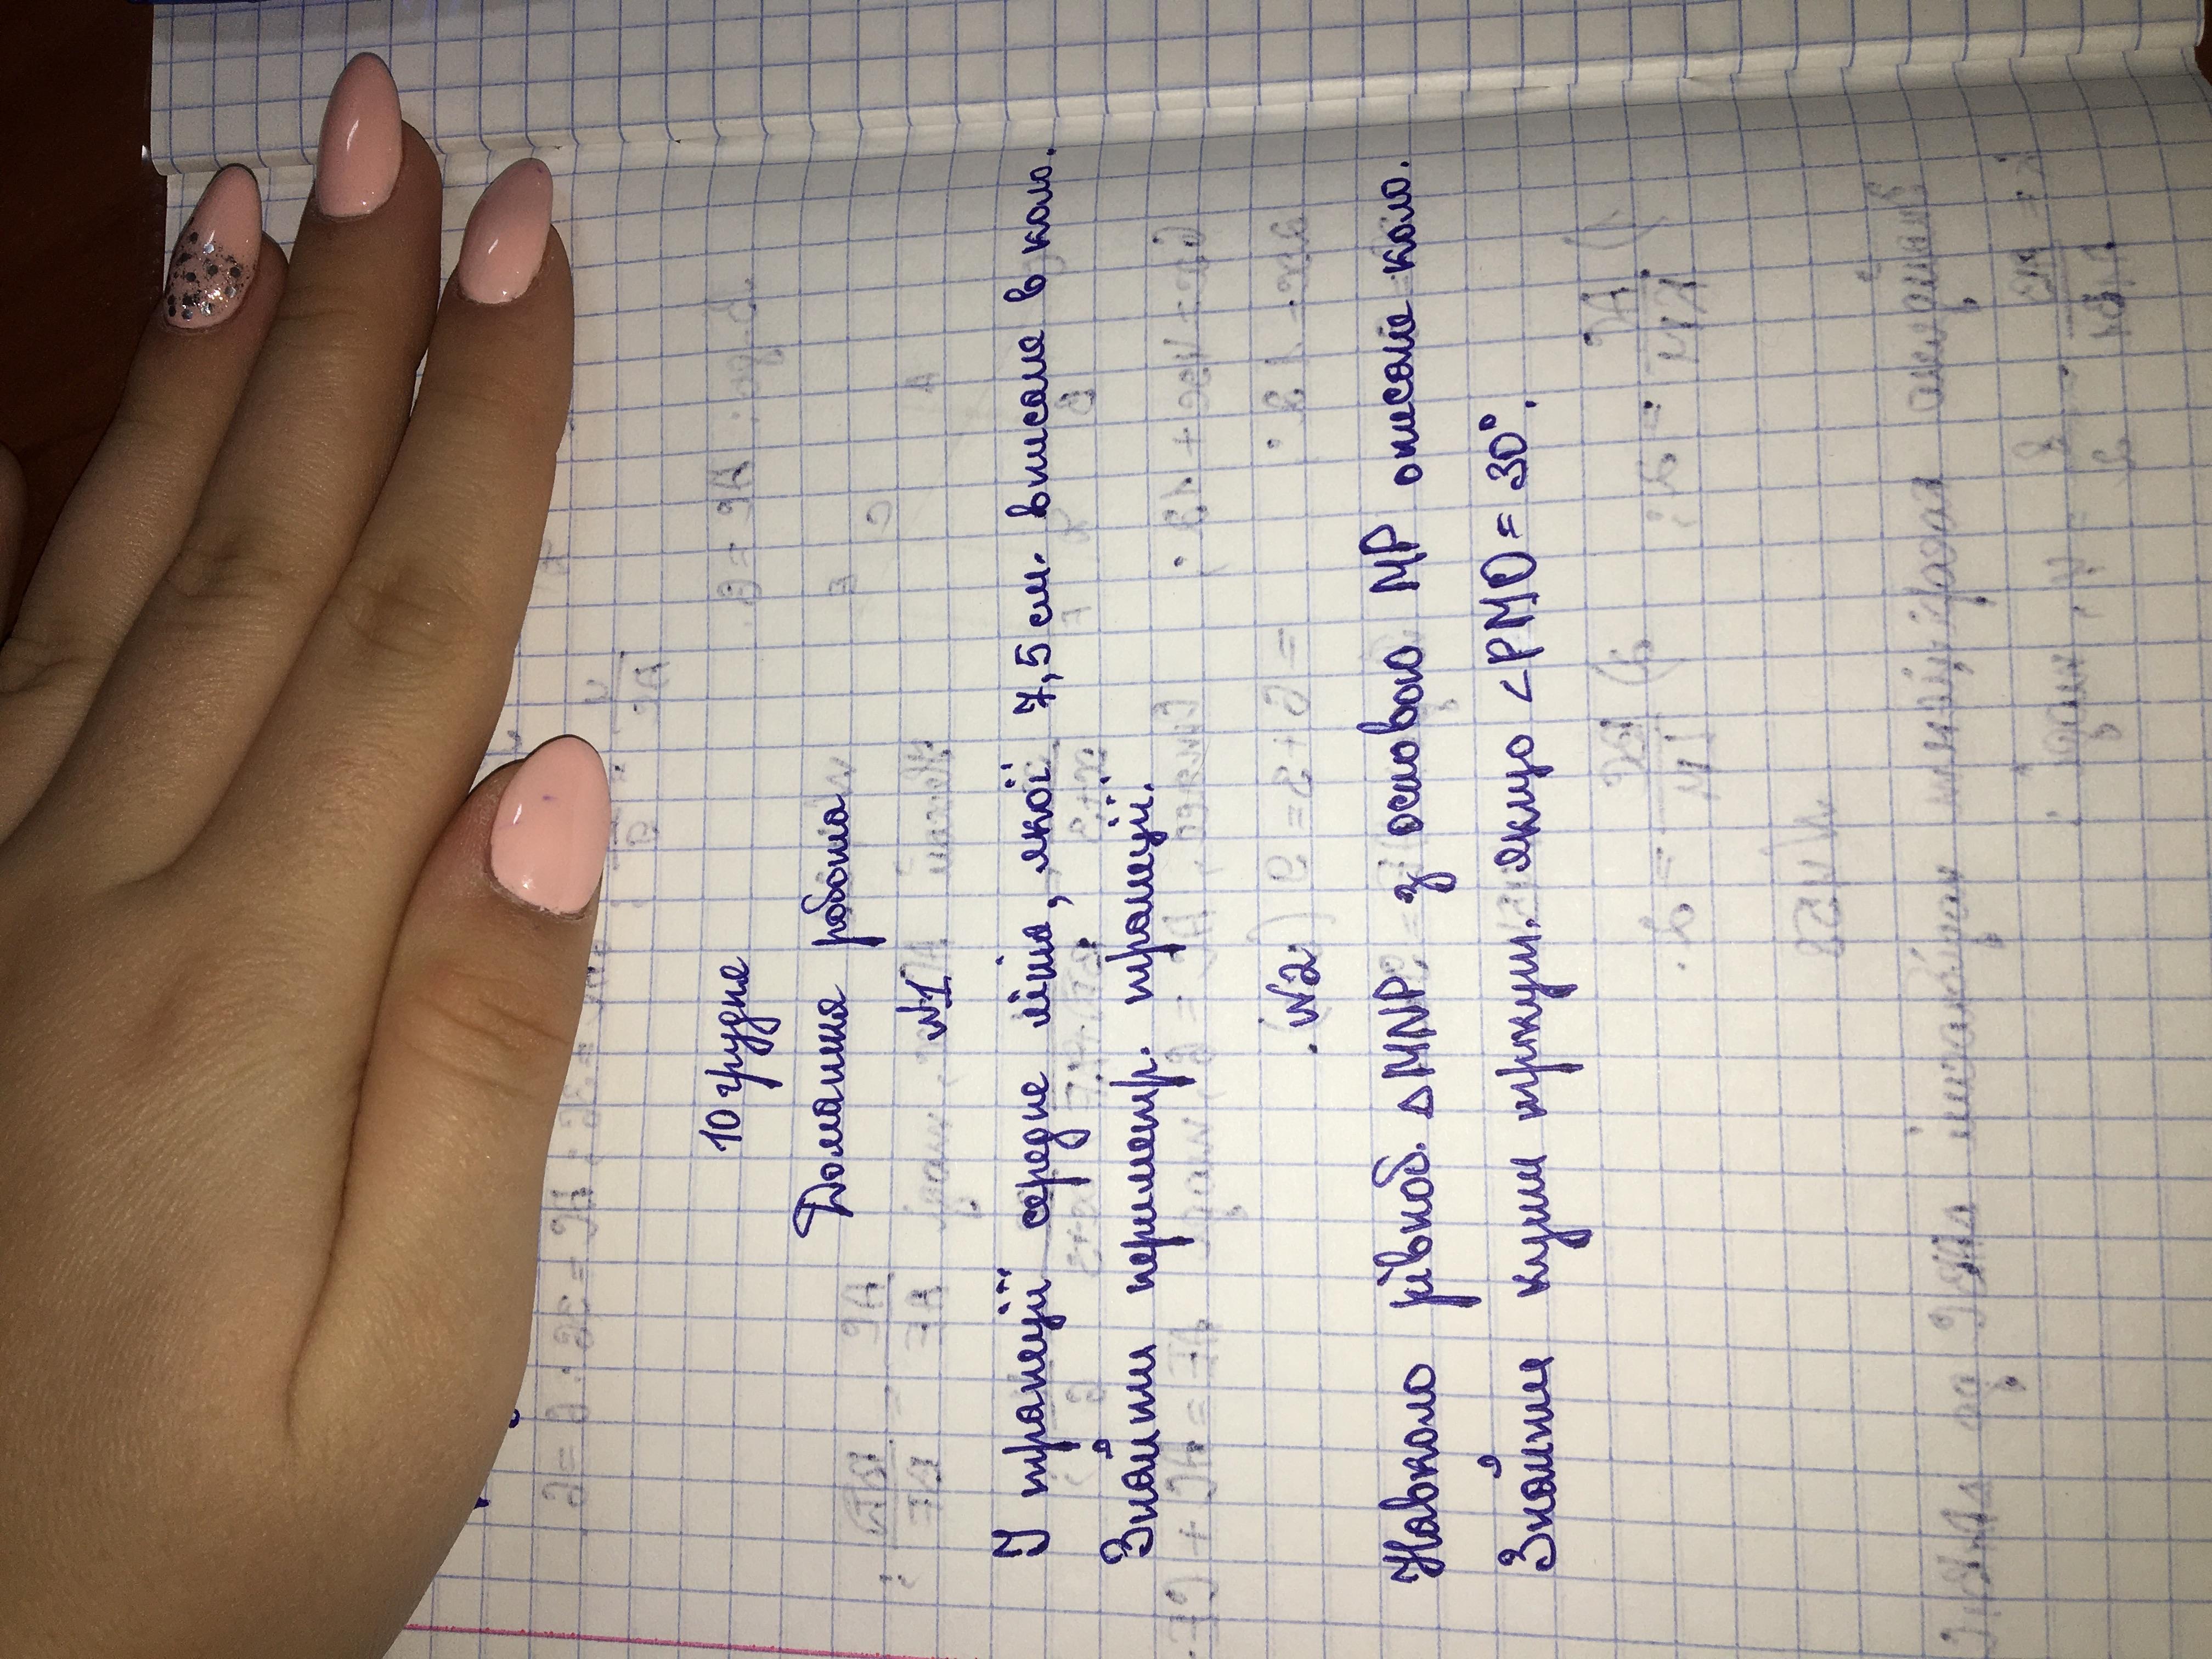 10 грудня
Домашня робота
№1
У трапеції середня лінія, якої 7,5 см. вписане в коло.
Знайти периметр. трапеції.
№2
Навколо рівноб. △MNP з основою MP описане коло.
Знайти кути трикутн. якщо <PMO = 30°.